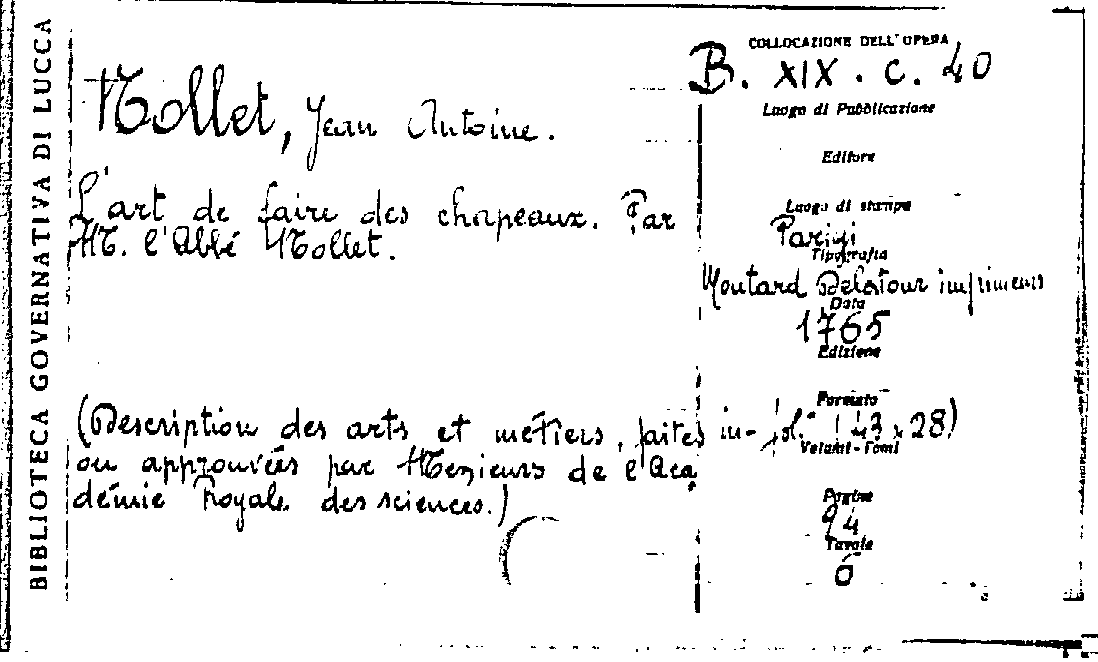 BIBLIOTECA GOVERNATIVA DI LUCCA
Nollet, Jean Antoine.
L'art de faire des chapeaux. Par
M. l'Abbé Nollet.
(Description des arts et métiers, faites
ou approuvées par Messieurs de l'Aca
démie Royale des sciences.)
COLLOCAZIONE DELL'OPERA
B. XIX. C. 40
Luogo di Pubblicazione
Editore
Luogo di stampa
Parigi
Tipografia
Moutard Delatour imprimeurs
Data
1765
Edizione
Formato
in-fol. (43x28)
Volumi-Tomi
Pagine
94
Tavole
6